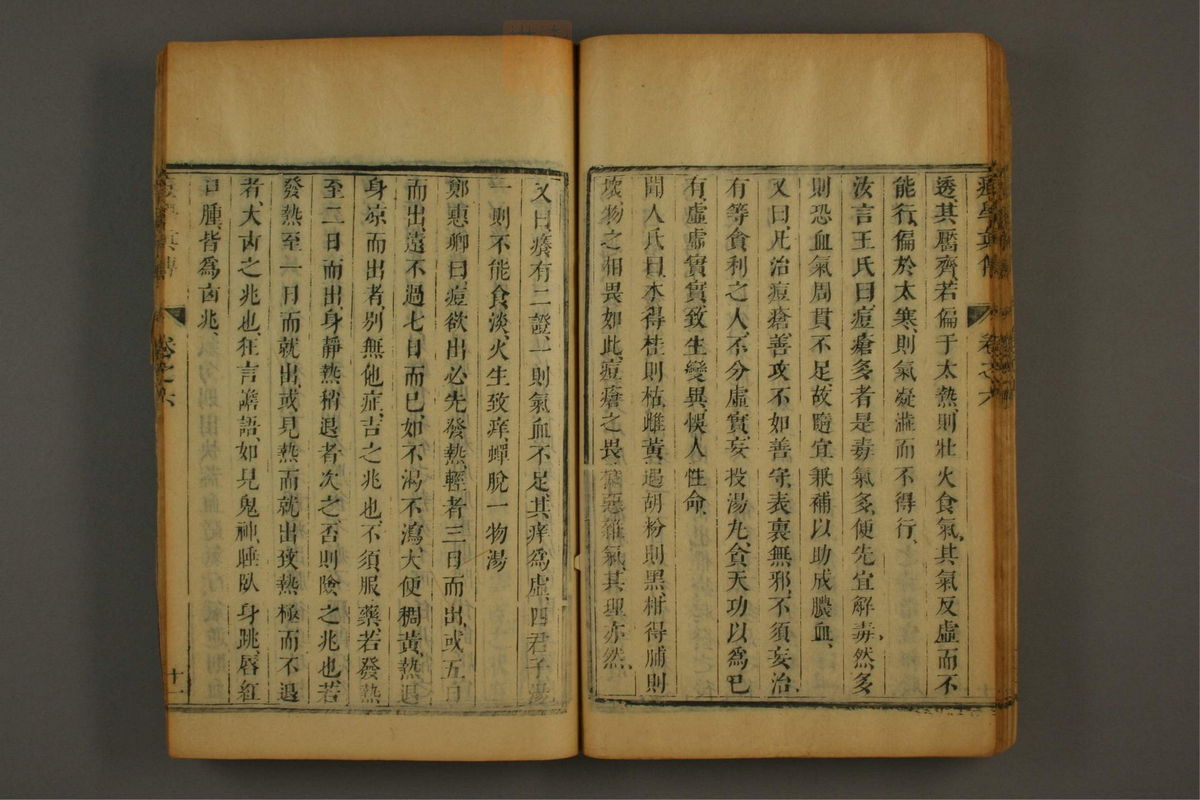 痘學真傳 卷之六
透其靨齊若偏于太熱則壯火食氣其氣反虛而不
能行偏於太寒則氣凝澁而不得行
汝言王氏曰痘瘡多者是毒氣多便先宜解毒然多
則恐血氣周貫不足故隨宜兼補以助成膿血
又曰凡治痘瘡善攻不如善守表裏無邪不須妄治
有等貪利之人不分虛實妄投湯丸貪天功以爲己
有虛虛實實致生變異悞人性命
聞人氏曰木得桂則枯雌黃遇胡粉則黑柑得脯則
壞物之相畏如此痘瘡之畏穢惡雜氣其理亦然
又曰癢有二證一則氣血不足其痒爲虛四君子湯
一則不能食淡火生致痒蟬脫一物湯
鄭惠卿曰痘欲出必先發熱輕者三日而出或五日
而出遠不過七日而已如不渴不瀉大便稠黃熱退
身凉而出者別無他症吉之兆也不須服藥若發熱
至二日而出身靜熱稍退者次之否則險之兆也若
發熱至一日而就出或見熱而就出致熱極而不退
者大凶之兆也狂言譫語如見鬼神睡臥身跳唇紅
口腫皆爲凶兆
真傳 卷之六 十一